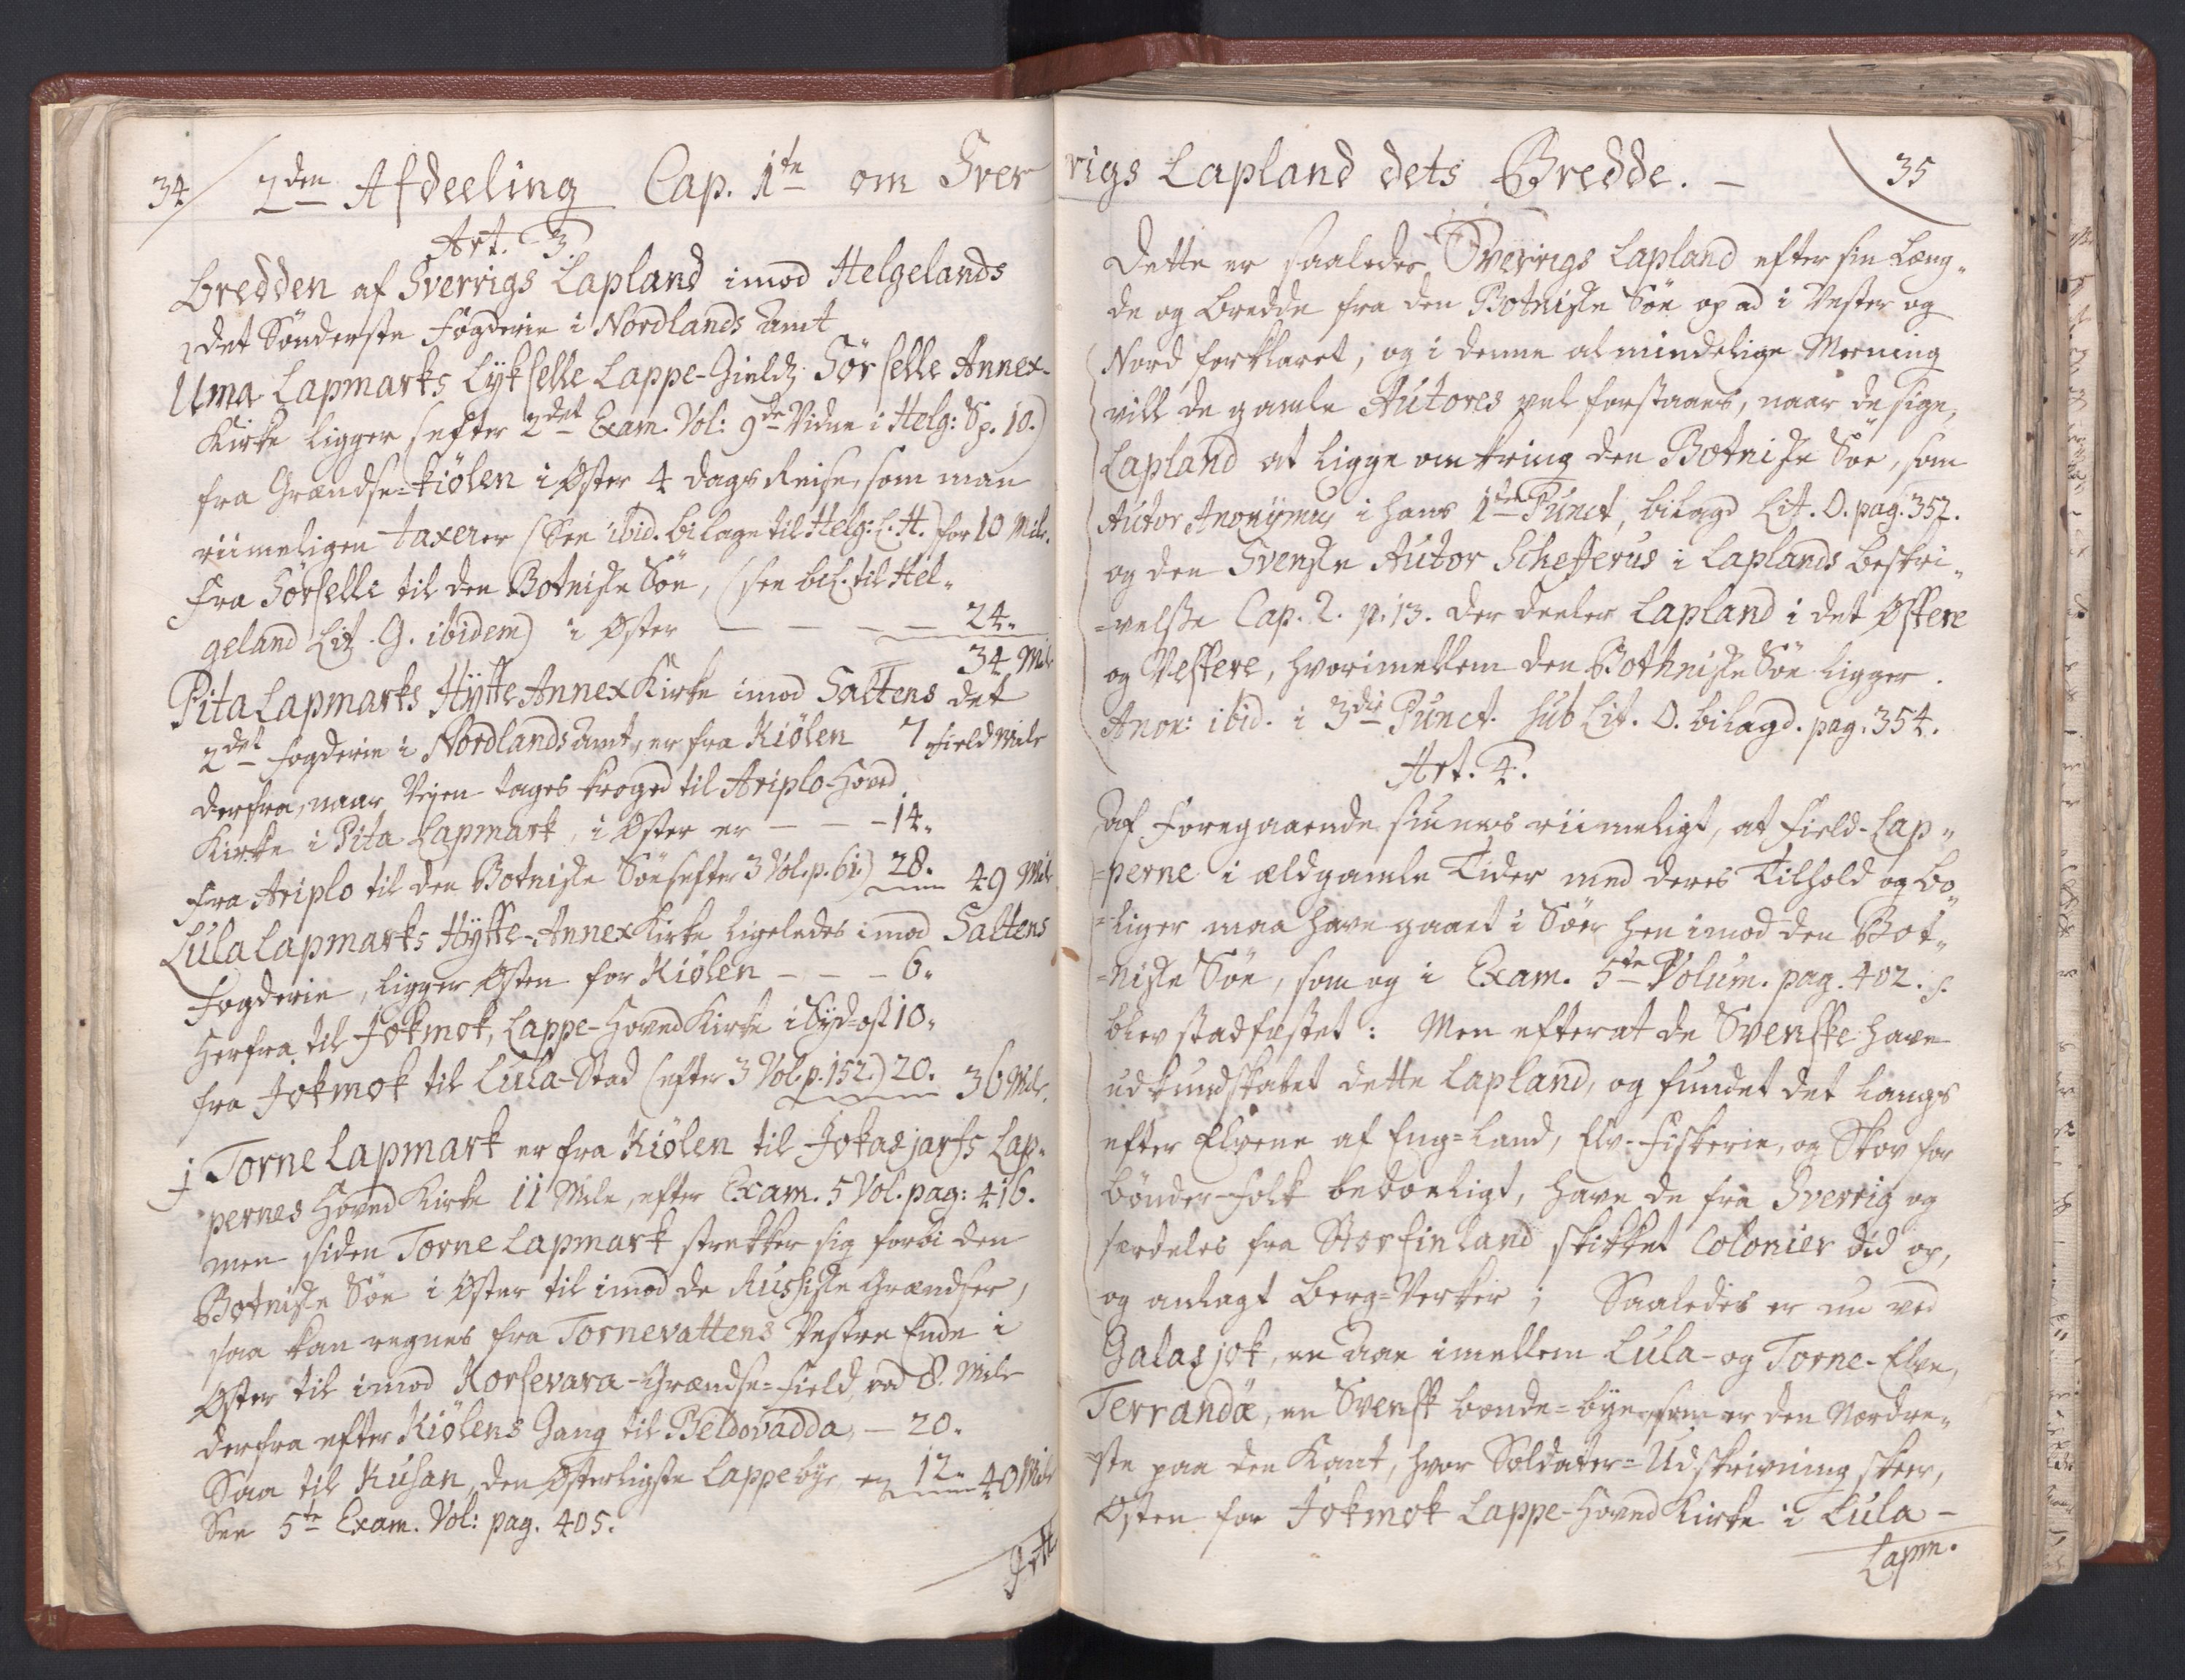 34
2den Afdeeling Cap. 1te om Sver
Art. 3.
Bredden af Sverrigs Lapland imod Helgelands
det Sönderste Fogderie i Nordlands Amt
Uma Lapmarks Lykselle Lappe-Gields Sörselle Annex-
Kirke ligger (efter 2det Exam. Vol: 9de Vidne i Helg: Sp. 10.)
fra Grændse-Kiölen i Öster 4 dags Reise, som man
riimeligen taxerer (See ibid. bilage til Helg: L. H.) for 10 Mile.
Fra Sörselle til den Botniske Söe, (see bil. til Hel-
geland Lit. G. ibidem) i Öster — — — — 24.
34 Mile
Pita Lapmarks Hytte Annex Kirke imod Saltens det
2det Fogderie i Nordlands Amt, er fra Kiölen 7 Field Mile
derfra, naar Veyen tages kroged til Ariplo-Hoved
Kirke i Pita Lapmark, i Öster er — — - 14.
Fra Ariplo til den Botniske Söe (efter 3 Vol. p. 61.) 28. 49 Mile
Lula Lapmarks Hytte-Annex Kirke ligeledes imod Saltens
Fogderie, ligger Östen for Kiölen - - - 6.
Herfra til Jokmok, Lappe-Hoved Kirke i Syd-ost 10.
fra Jokmok til Lula-Stad (efter 3 Vol. p. 152.) 20. 36 Mile.
j Torne Lapmark er fra Kiölen til Jokasjarfs Lap-
pernes Hoved Kirke 11 Mile, efter Exam. 5 Vol. pag: 416.
men siden Torne Lapmark strekker sig forbi den
Botniske Söe i Öster til imod de Russiske Grændser,
saa kan regnes fra Tornevattens Vestre Ende i
Öster til imod Korsevara-Grændse-Field, ved 8. Mile
derfra efter Kiölens Gang til Beldovadda, — 20.
Saa til Kusan, den Österligste Lappebye, er 12. 40 Mile
See 5te Exam. Vol: pag. 405.
rigs Lapland dets Bredde. —
35
Dette er saaledes Sverrigs Lapland efter sin Læng-
de og Bredde fra den Botniske Söe op ad i Vester og
Nord forklaret, og i denne almindelige Meening
vill de gamle Autores vel forstaaes, naar de sige,
Lapland at ligge omkring den Botniske Söe, som
Autor Anonymus i hans 1ste Punct, bilagd Lit. O. pag. 352.
og den Svenske Autor Schefferus i Laplands Beskri-
=velse Cap. 2. p. 13. der deeler Lapland i det Östere
og Vestere, hvorimellem den Bothniske Söe ligger.
Anon: ibid. i 3die Punct. sub Lit. O. bilagd. pag. 354.
Art. 4.
Af Foregaaende siunes riimeligt, at Field-Lap-
=perne i ældgamle Tider med deres Tilhold og Bo-
=liger maa have gaaet i Söer hen imod den Bot-
=niske Söe, som og i Exam. 5te Volum. pag. 402. s.
blev stadfæstet: Men efterat de Svenske have
udkundskabet dette Lapland, og fundet det langs
efter Elvene af Eng-Land, Elv-Fiskerie, og Skov for
Bönder-Folk beboeligt, have de fra Sverrig og
særdeles fra Stor Finland skikket Colonier did op,
og anlagt Berg-Verker; Saaledes er nu ved
Galasjok, en Aae imellem Lula- og Torne-Elve,
Terrandæ, en Svensk Bonde-bye, som er den Nordre-
ste paa den Kant, hvor Soldater-Udskrivning skeer,
Östen for Jokmok Lappe-Hoved Kirke i Lula-
Lapm.